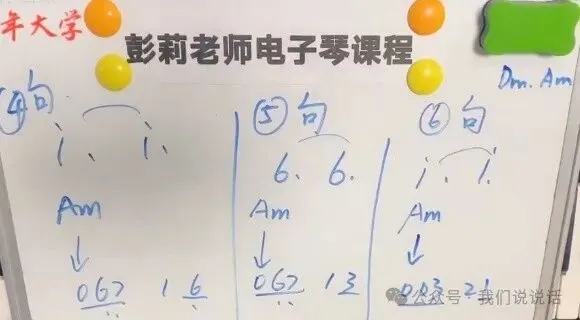 年大学
彭莉老师电子琴课程
Dm. Am
④句
i. i.
Am
↓
067 1 6
⑤句
6. 6.
Am
↓
067 13
⑥句
i. i.
Am
↓
003 21
公众号·我们说说话